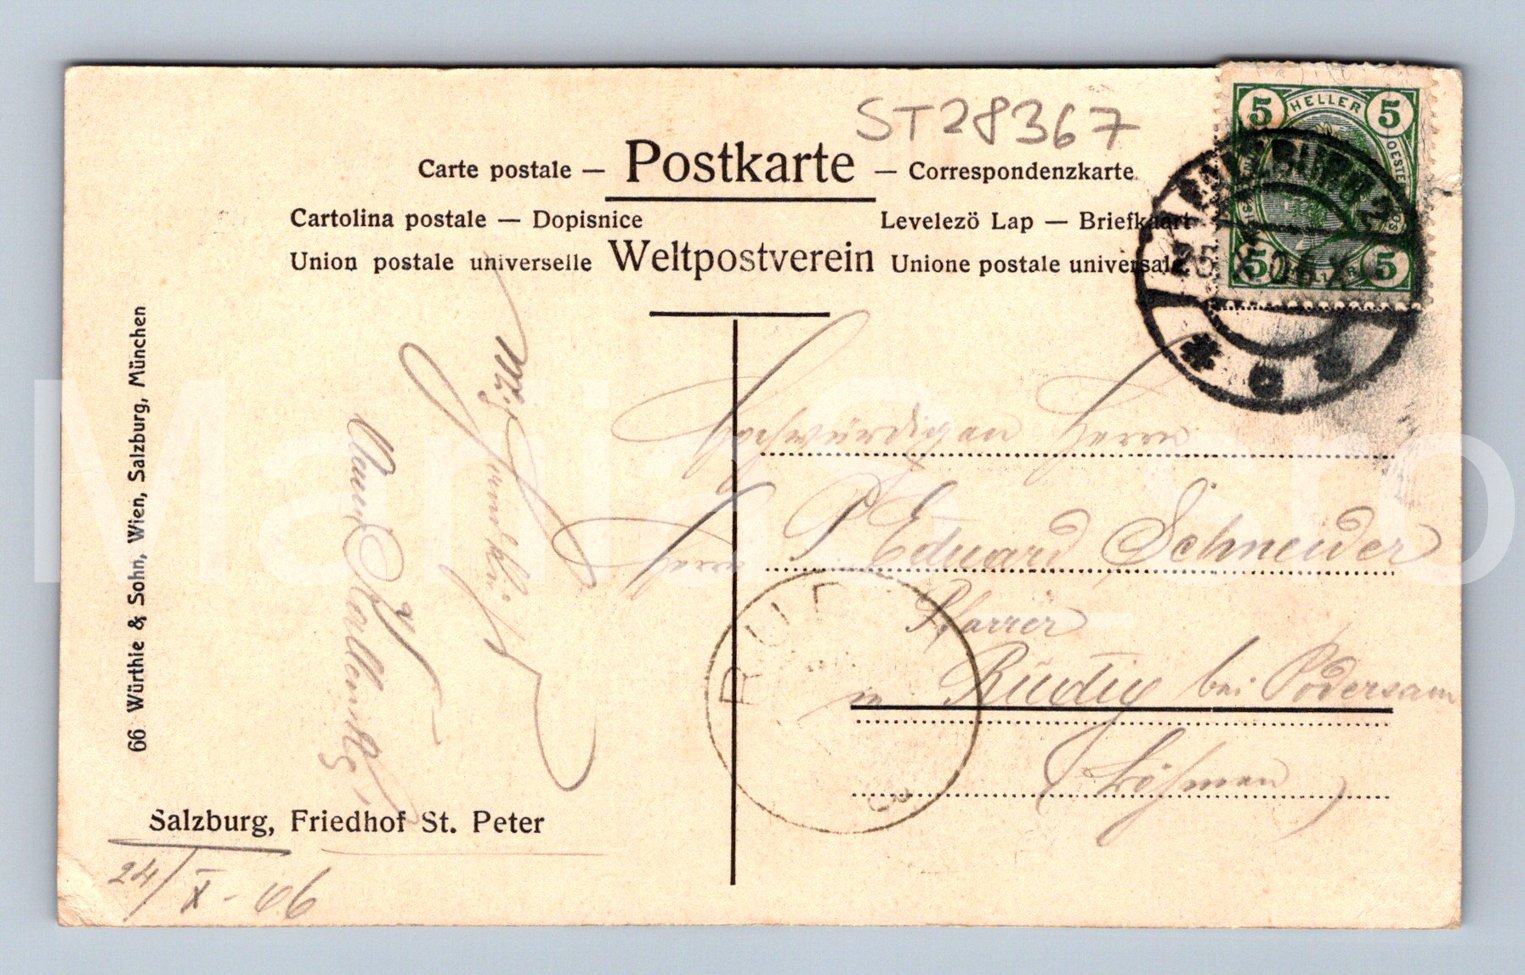 ST28367
Carte postale — Postkarte — Correspondenzkarte
Cartolina postale — Dopisnice Levelezö Lap — Briefkaart
Union postale universelle Weltpostverein Unione postale universale
5 HELLER 5
5 5
SALZBURG 2
Hochwürdigen Herrn
Herrn P. Eduard Schneider
Pfarrer
in Rudig bei Podersam
(Böhmen)
RUD
Mit
66 Würthle & Sohn, Wien, Salzburg, München
Salzburg, Friedhof St. Peter
24/X - 06